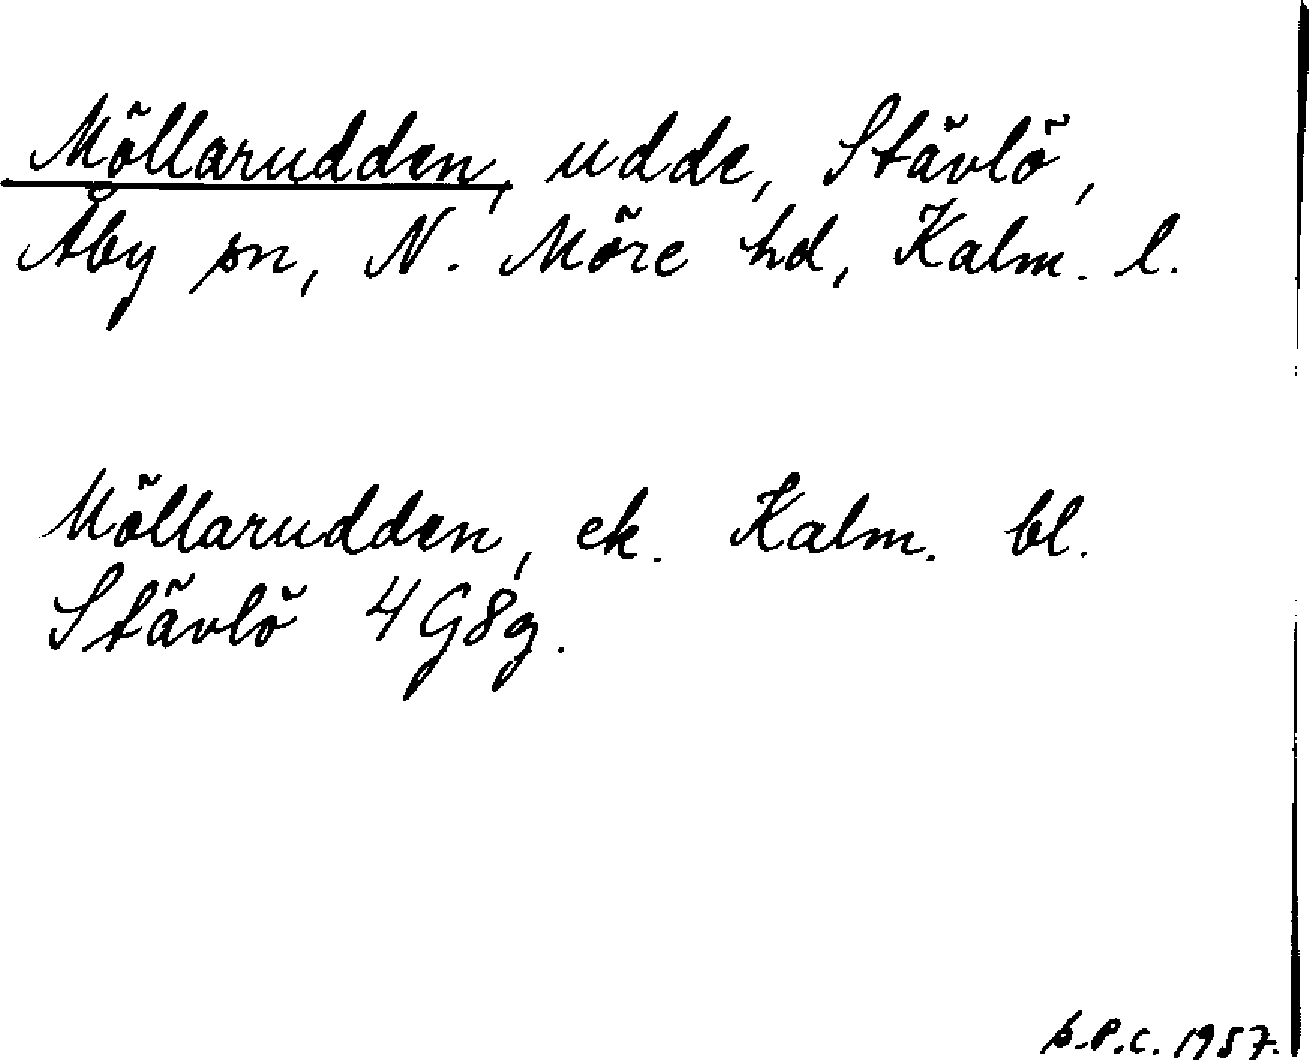 Möllarudden, udde, Stävlö,
Åby sn, N. Möre hd, Kalm. l.
Möllarudden, ek. Kalm. bl.
Stävlö 4G8g.
S.P.C. 1957.